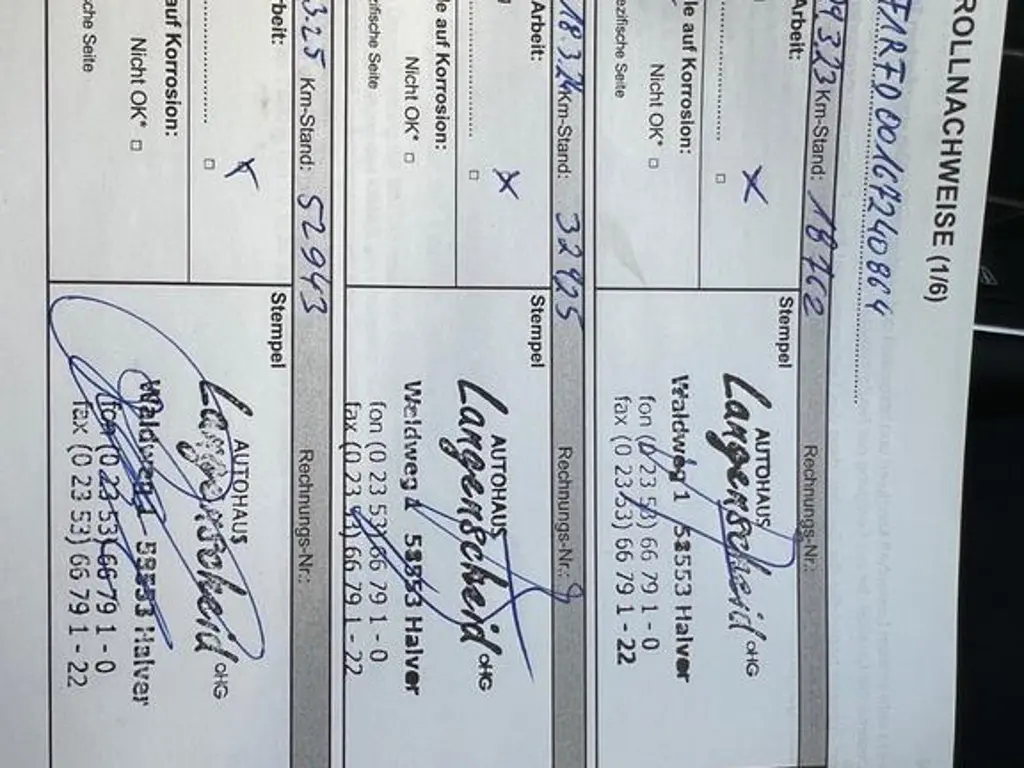 ROLLNACHWEISE (1/6)
F1RFD00167240864
3.23 Km-Stand: 18762 Rechnungs-Nr.:
Arbeit:
Stempel
AUTOHAUS
Langenscheid OHG
Waldweg 1 58553 Halver
fon (0 23 53) 66 79 1 - 0
fax (0 23 53) 66 79 1 - 22
le auf Korrosion:
Nicht OK*
ezifische Seite
18.3.24 Km-Stand: 32425 Rechnungs-Nr.:
Arbeit:
Stempel
AUTOHAUS
Langenscheid OHG
Waldweg 1 58553 Halver
fon (0 23 53) 66 79 1 - 0
fax (0 23 53) 66 79 1 - 22
le auf Korrosion:
Nicht OK*
ezifische Seite
3.25 Km-Stand: 52943 Rechnungs-Nr.:
beit:
Stempel
AUTOHAUS
Langenscheid OHG
Waldweg 1 58553 Halver
fon (0 23 53) 66 79 1 - 0
fax (0 23 53) 66 79 1 - 22
auf Korrosion:
Nicht OK*
che Seite